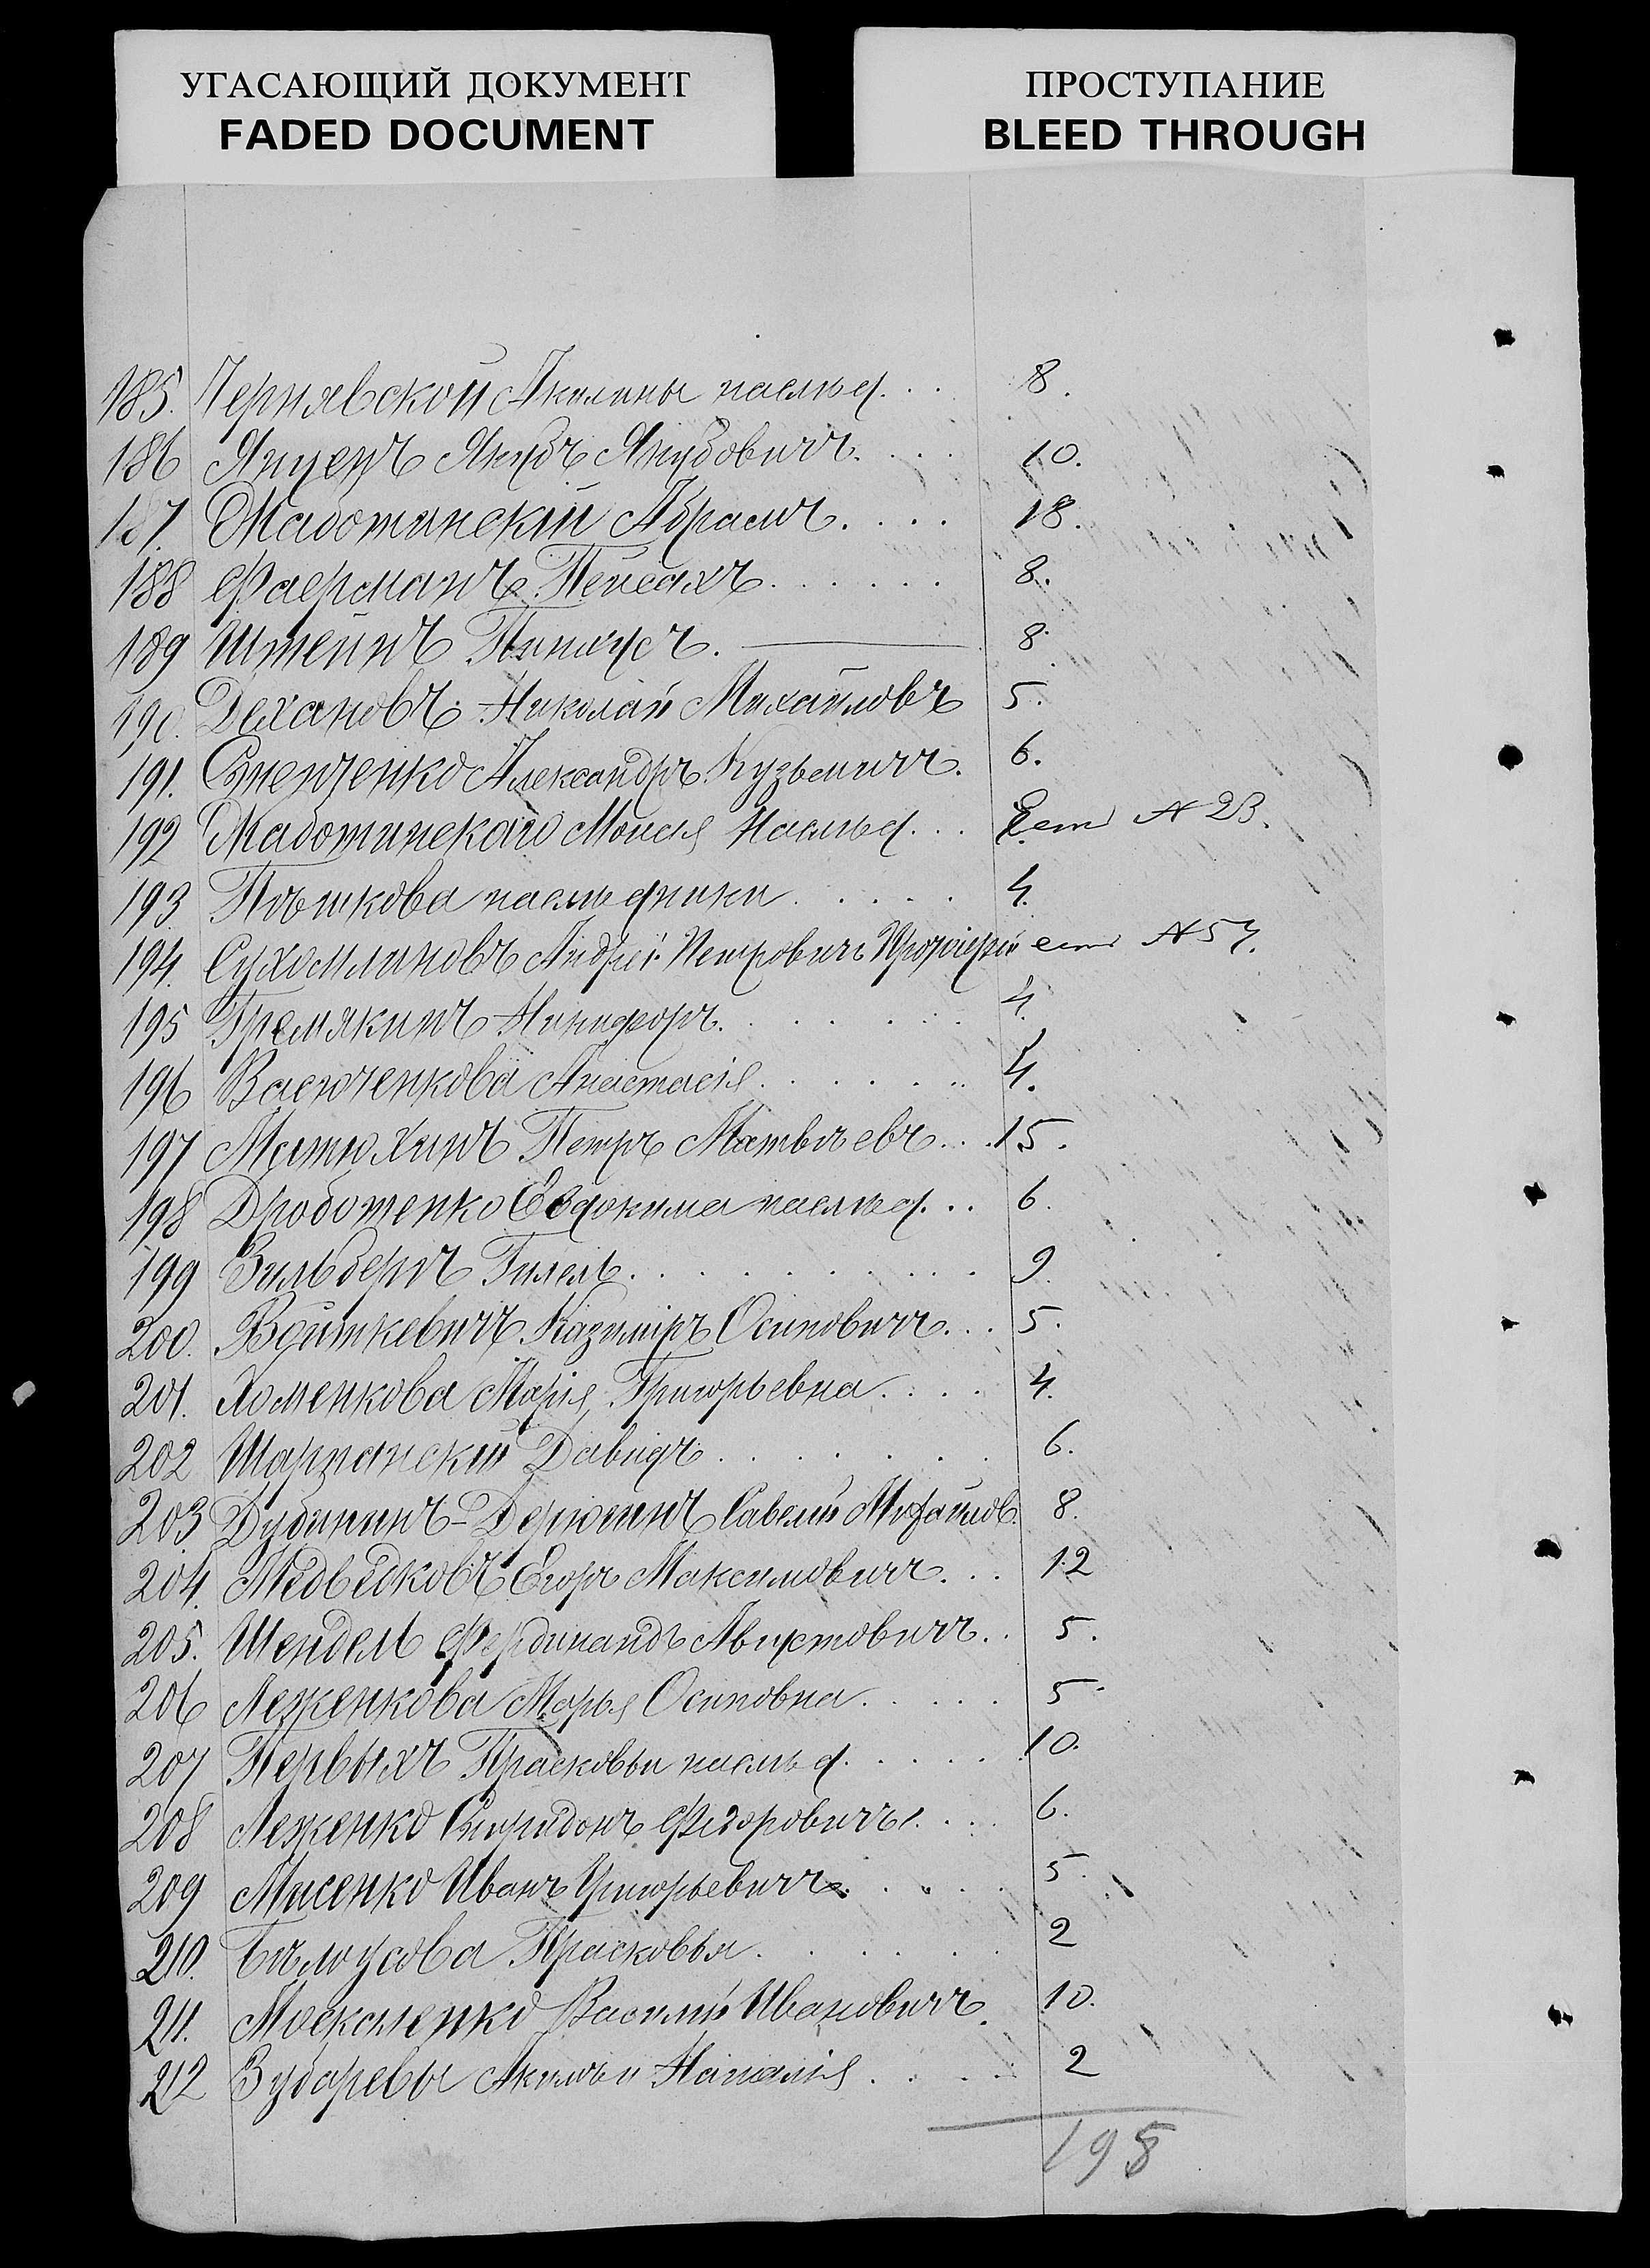 УГАСАЮЩИЙ ДОКУМЕНТ
FADED DOCUMENT
ПРОСТУПАНИЕ
BLEED THROUGH
185. Чернявской Акилины наслѣд. . . 8.
186 Якубъ Якубовичъ. . . . 10.
187. Жаботинскій Абрамъ. . . . 18.
188 Фаерманъ Пейсахъ . . . . . . 8.
189 Штейнъ Пинхусъ. 8.
190. Дехановъ Николай Михайловъ 5.
191. Александръ Кузьмичъ. 6.
192 Жаботинскаго Моисея Наслѣд. . . есть № 23.
193. наслѣдники . . . . . 4.
194. Сухомлиновъ Андрей Петровичъ Протоіерей есть № 57.
195 Гремякинъ Никифоръ. . . . . . . 4.
196 Васюченкова Анастасія . . . . . . 4.
197 Матюхинъ Петръ Матвѣевъ. . . 15.
198 Дроботенко Евдокима наслѣд. . . 6.
199 Зильберъ Гилель . . . . . . . . . 9.
200. Войткевичъ Казиміръ Осиповичъ. . . 5.
201. Хоменкова Марія Григорьевна . . . . 4.
202 Шарганскій Давидъ . . . . . . . 6.
203 Дубининъ-Дерюгинъ Савелій Михайлов. 8.
204. Медвѣдковъ Егоръ Максимовичъ. . . 12
205. Шендель Фердинандъ Августовичъ. . 5.
206 Леженкова Марья Осиповна . . . . . 5.
207 Первыхъ Прасковьи наслѣд . . . . . 10.
208 Леженко Спиридонъ Федоровичъ . . . 6.
209 Мисенко Иванъ Григорьевичъ . . . . 5.
210. Бѣлоусова Прасковья . . . . . . 2
211. Москаленко Василій Ивановичъ. 10.
212 Зубаревы Акимъ и Наталія . . . . 2
198